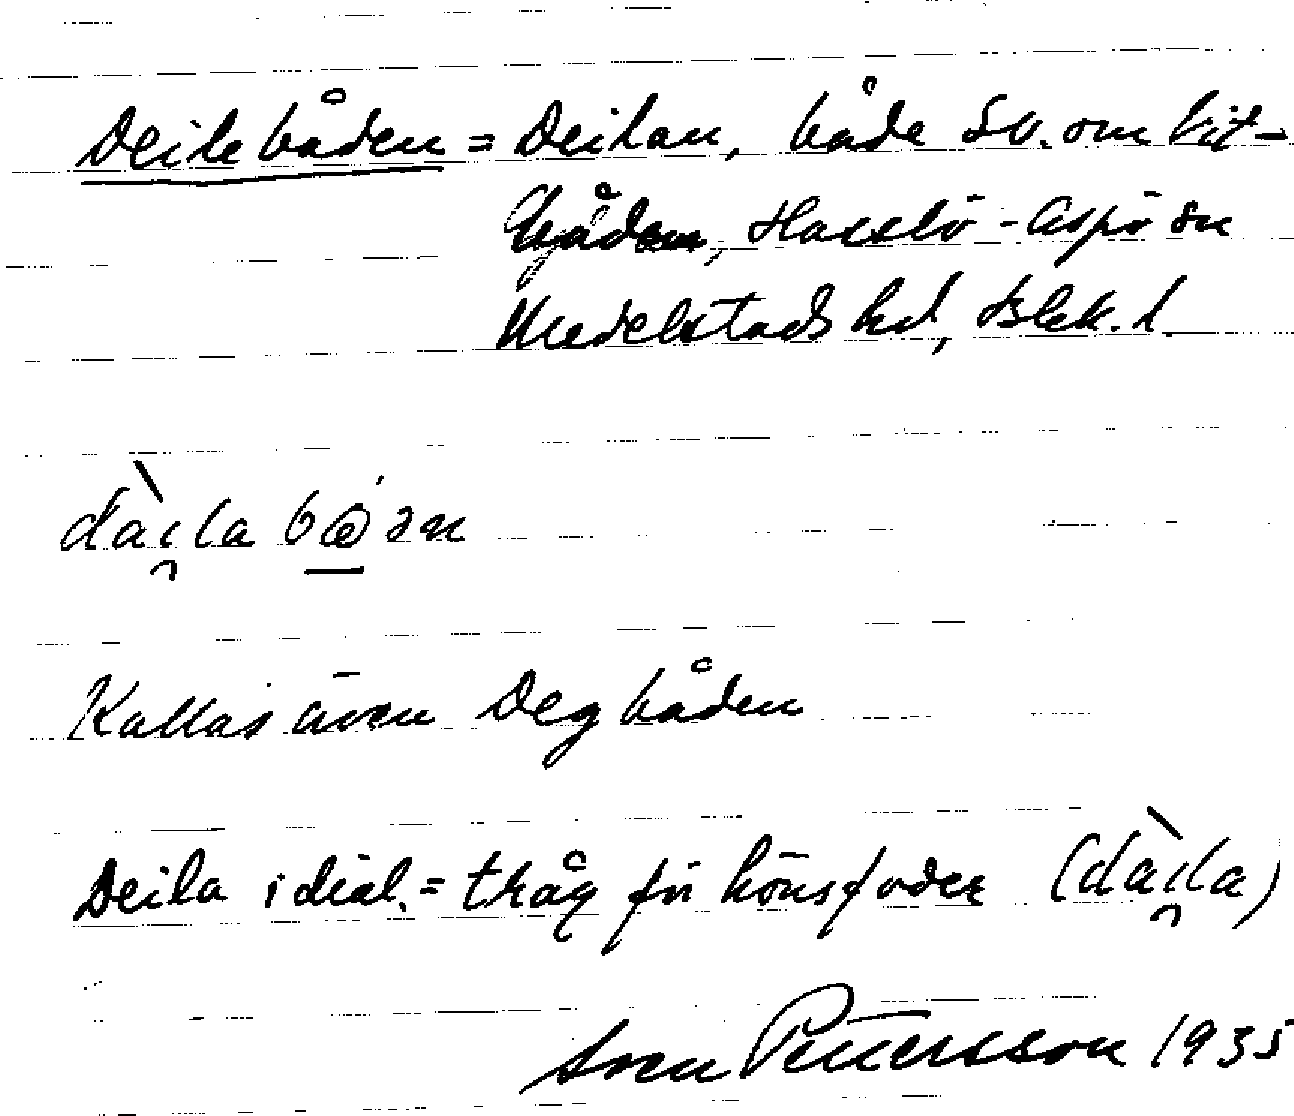 Deilebåden = Deilan, både SV. om Vit-
bådan, Hasslö-Aspö sn
Medelstads hd, Blek. l.
dàila bə̊ən
Kallas även Degbåden
Deila i dial. = tråg för hönsfoder (dàila)
Sven Pettersson 1935